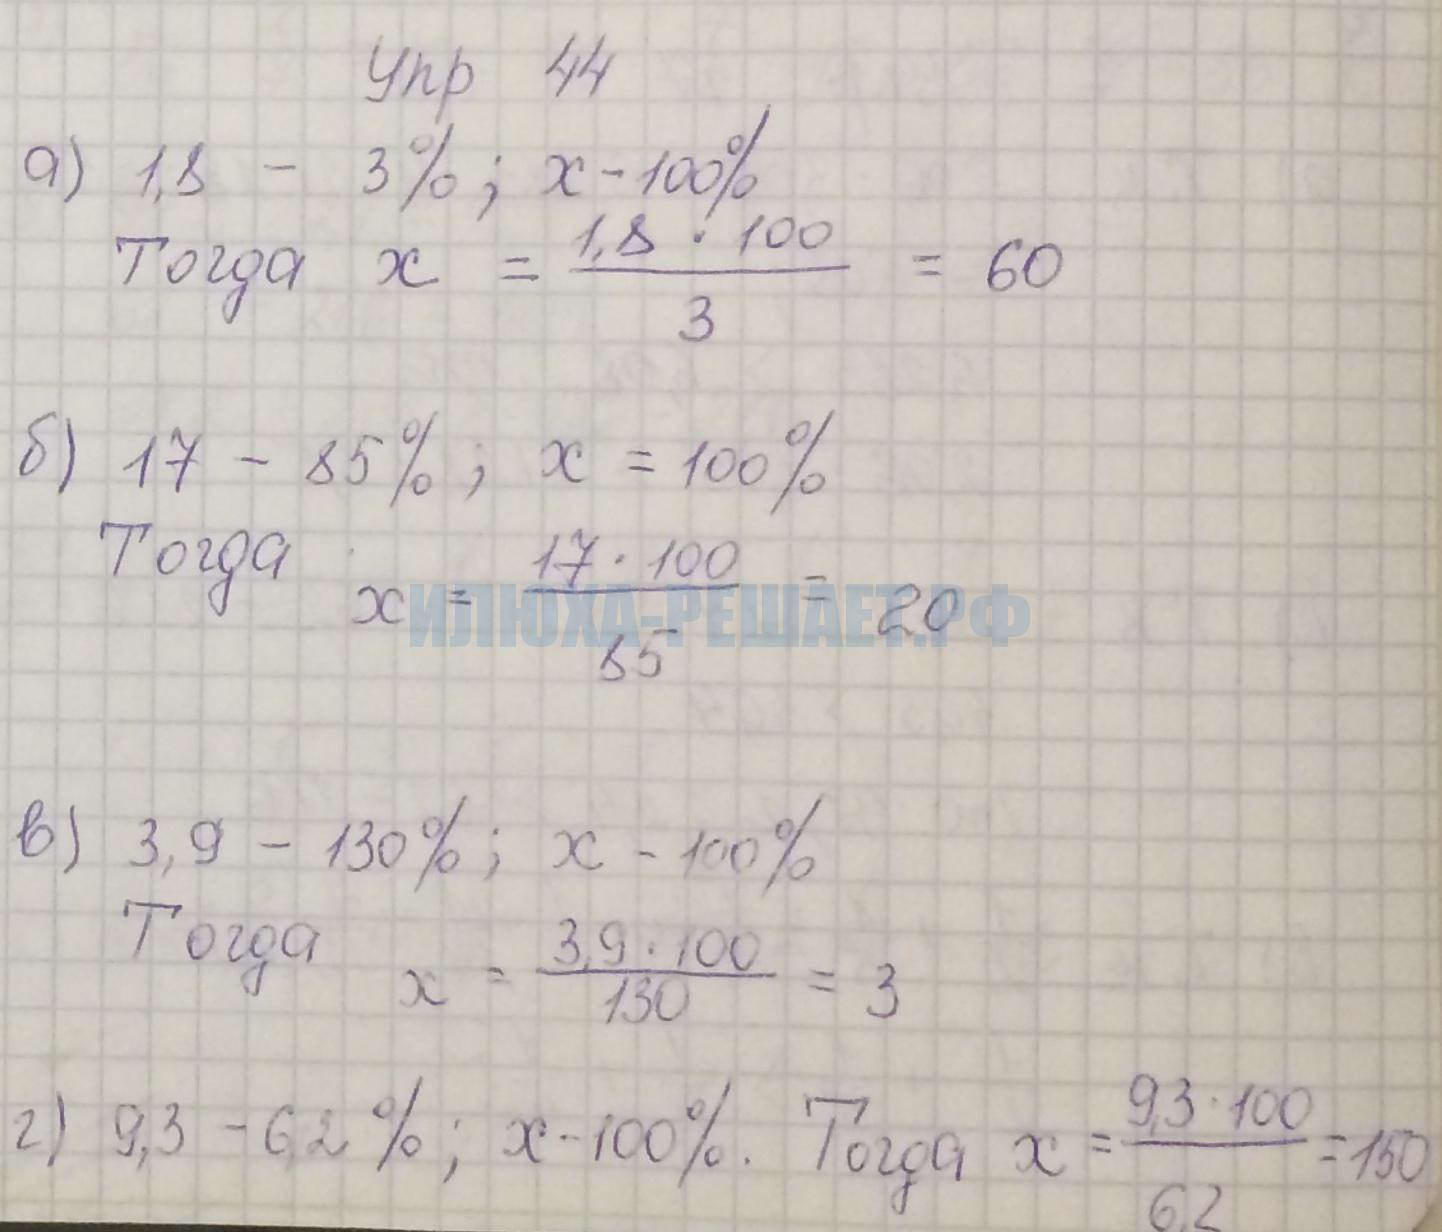 Упр 44
а) 1,8 - 3%; x - 100%
Тогда x = 1,8 · 100 / 3 = 60
б) 17 - 85%; x = 100%
Тогда x = 17 · 100 / 85 = 20
ИЛЮХА-РЕШАЕТ.РФ
в) 3,9 - 130%; x - 100%
Тогда x = 3,9 · 100 / 130 = 3
г) 9,3 - 6,2%; x - 100%. Тогда x = 9,3 · 100 / 6,2 = 150